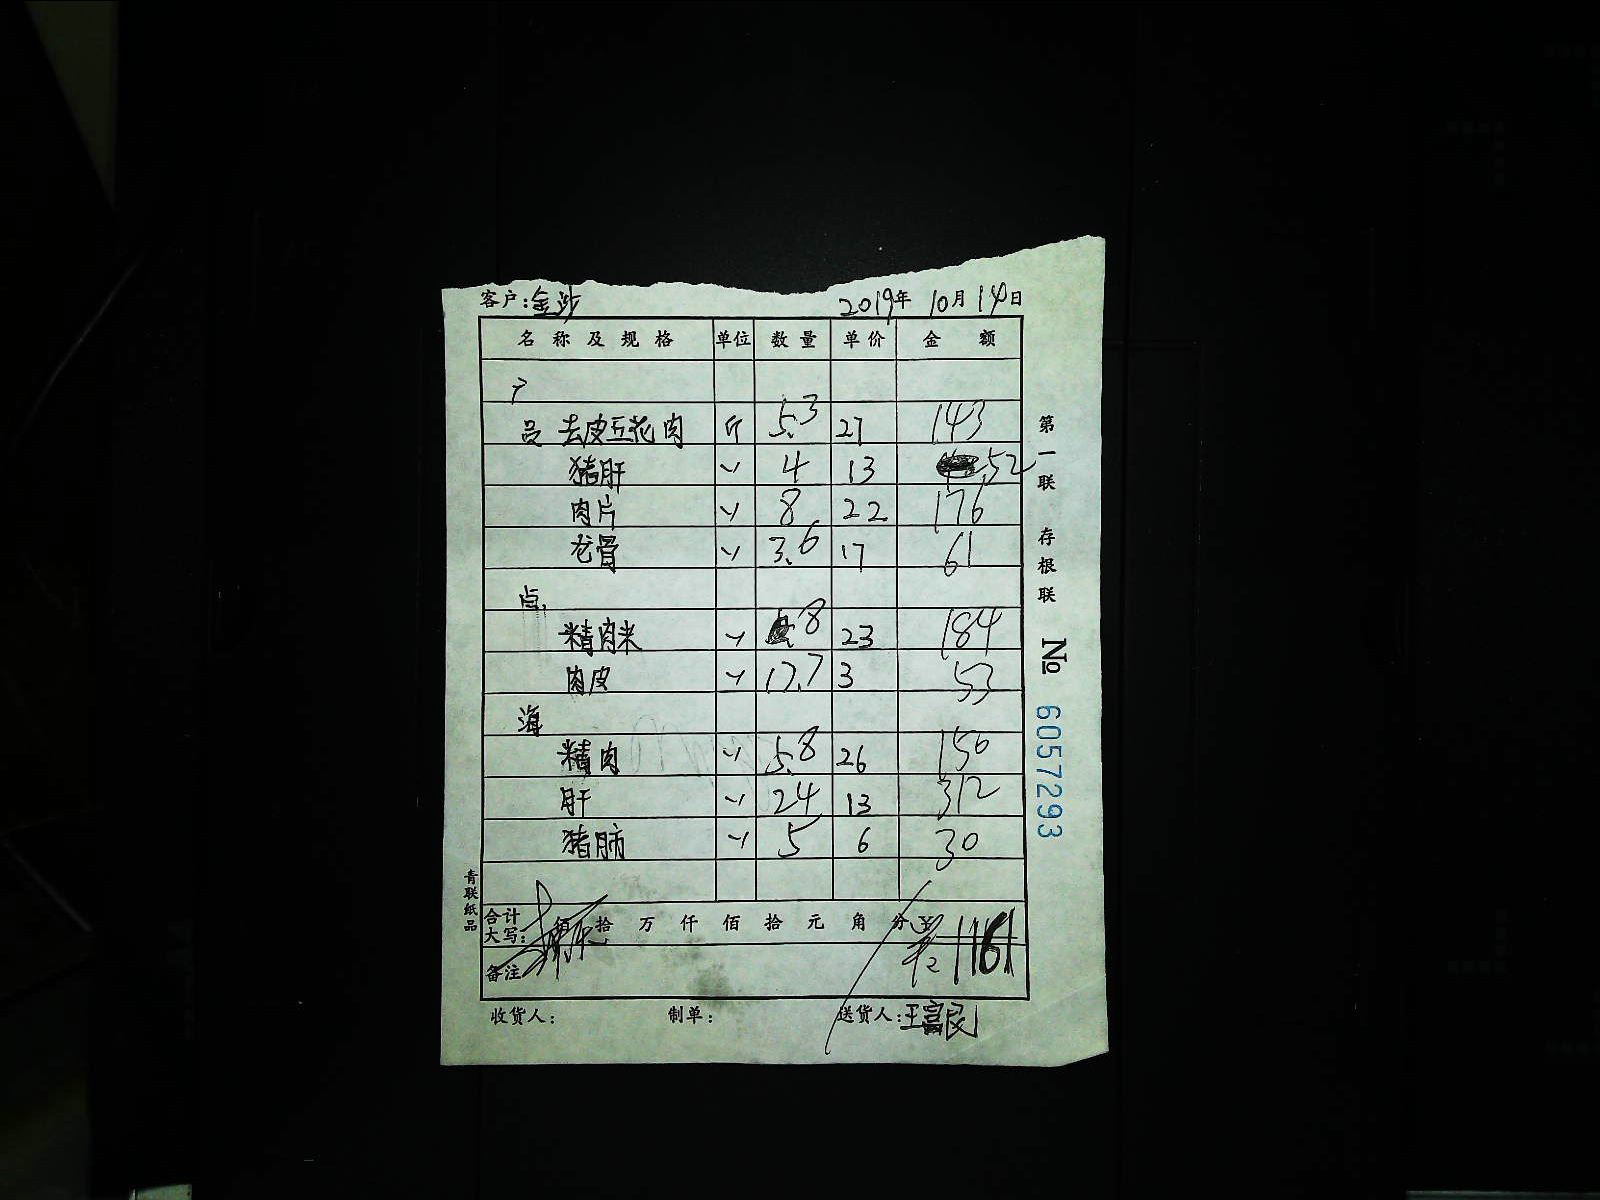 客户:金沙 2019年 10月 14日
名称及规格 单位 数量 单价 金额
员 去皮五花肉 斤 5.3 27 143
猪肝 〃 4 13 52
肉片 〃 8 22 176
龙骨 〃 3.6 17 61
点
精肉米 〃 8 23 184
肉皮 〃 17.7 3 53
海
精肉 〃 5.8 26 150
肝 〃 24 13 312
猪肺 〃 5 6 30
合计大写: 佰 拾 万 仟 佰 拾 元 角 分 1161
备注
收货人: 制单: 送货人:王富民
第一联 存根联
№ 6057293
青联纸品